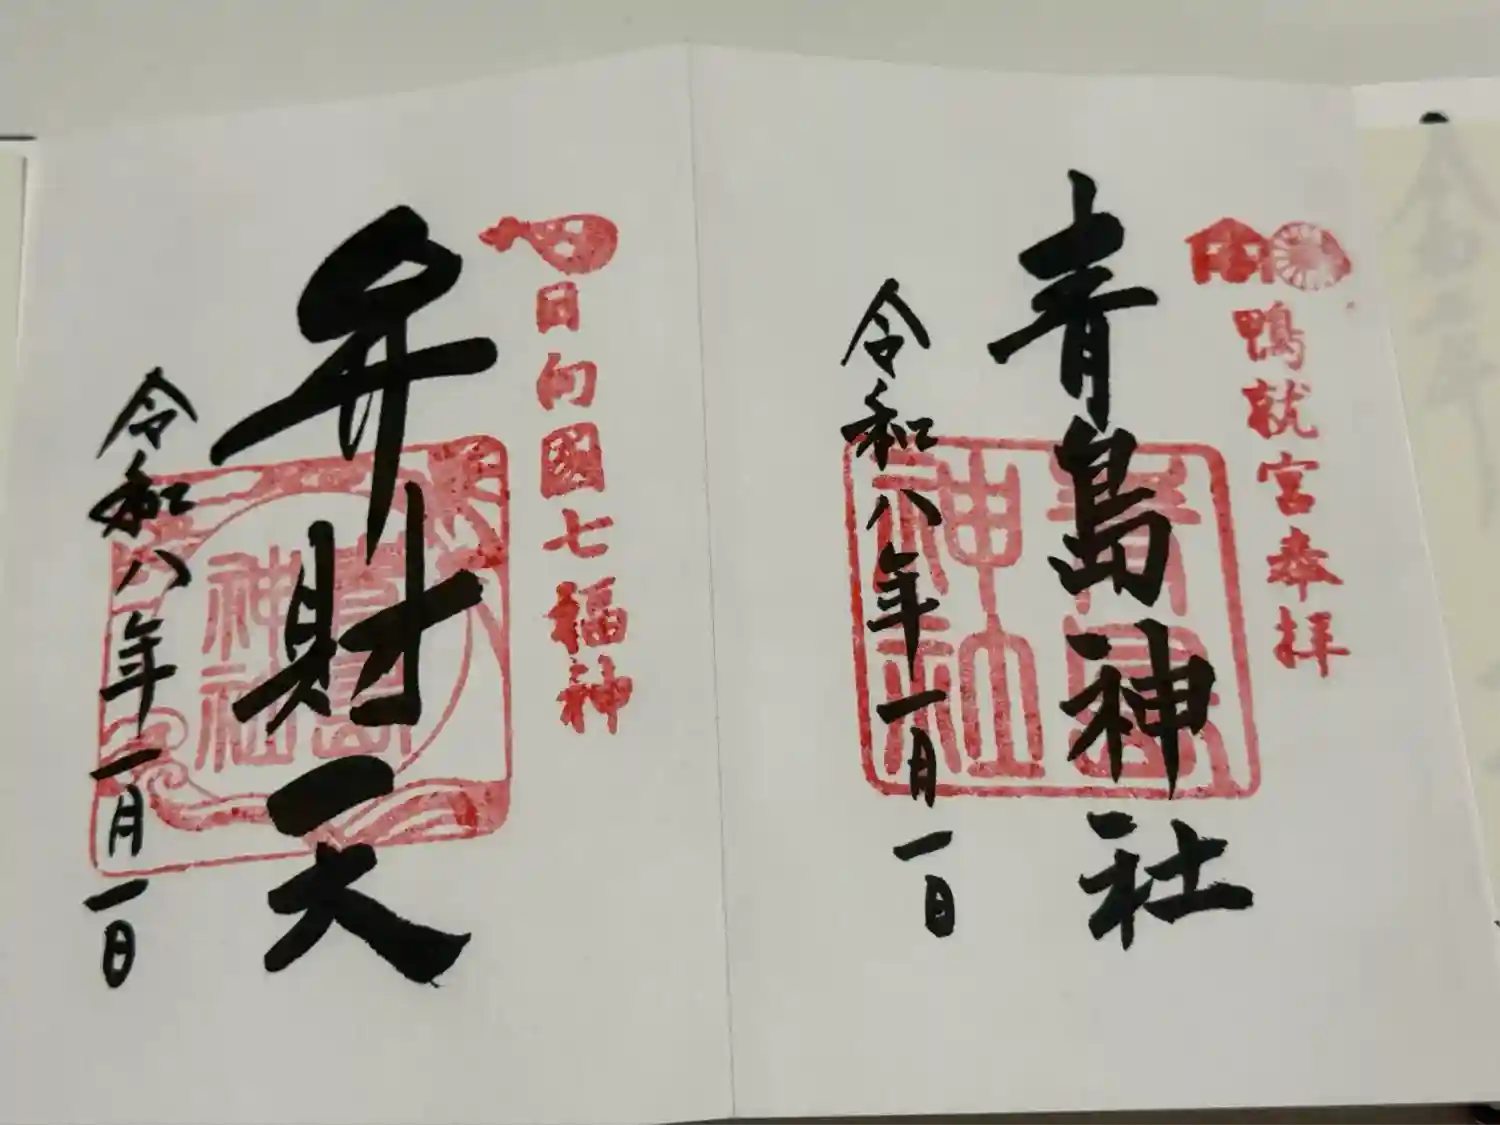 鴨就宮奉拝
青島神社
青島神社
令和八年一月一日
日向國七福神
弁財天
青島神社
令和八年一月一日